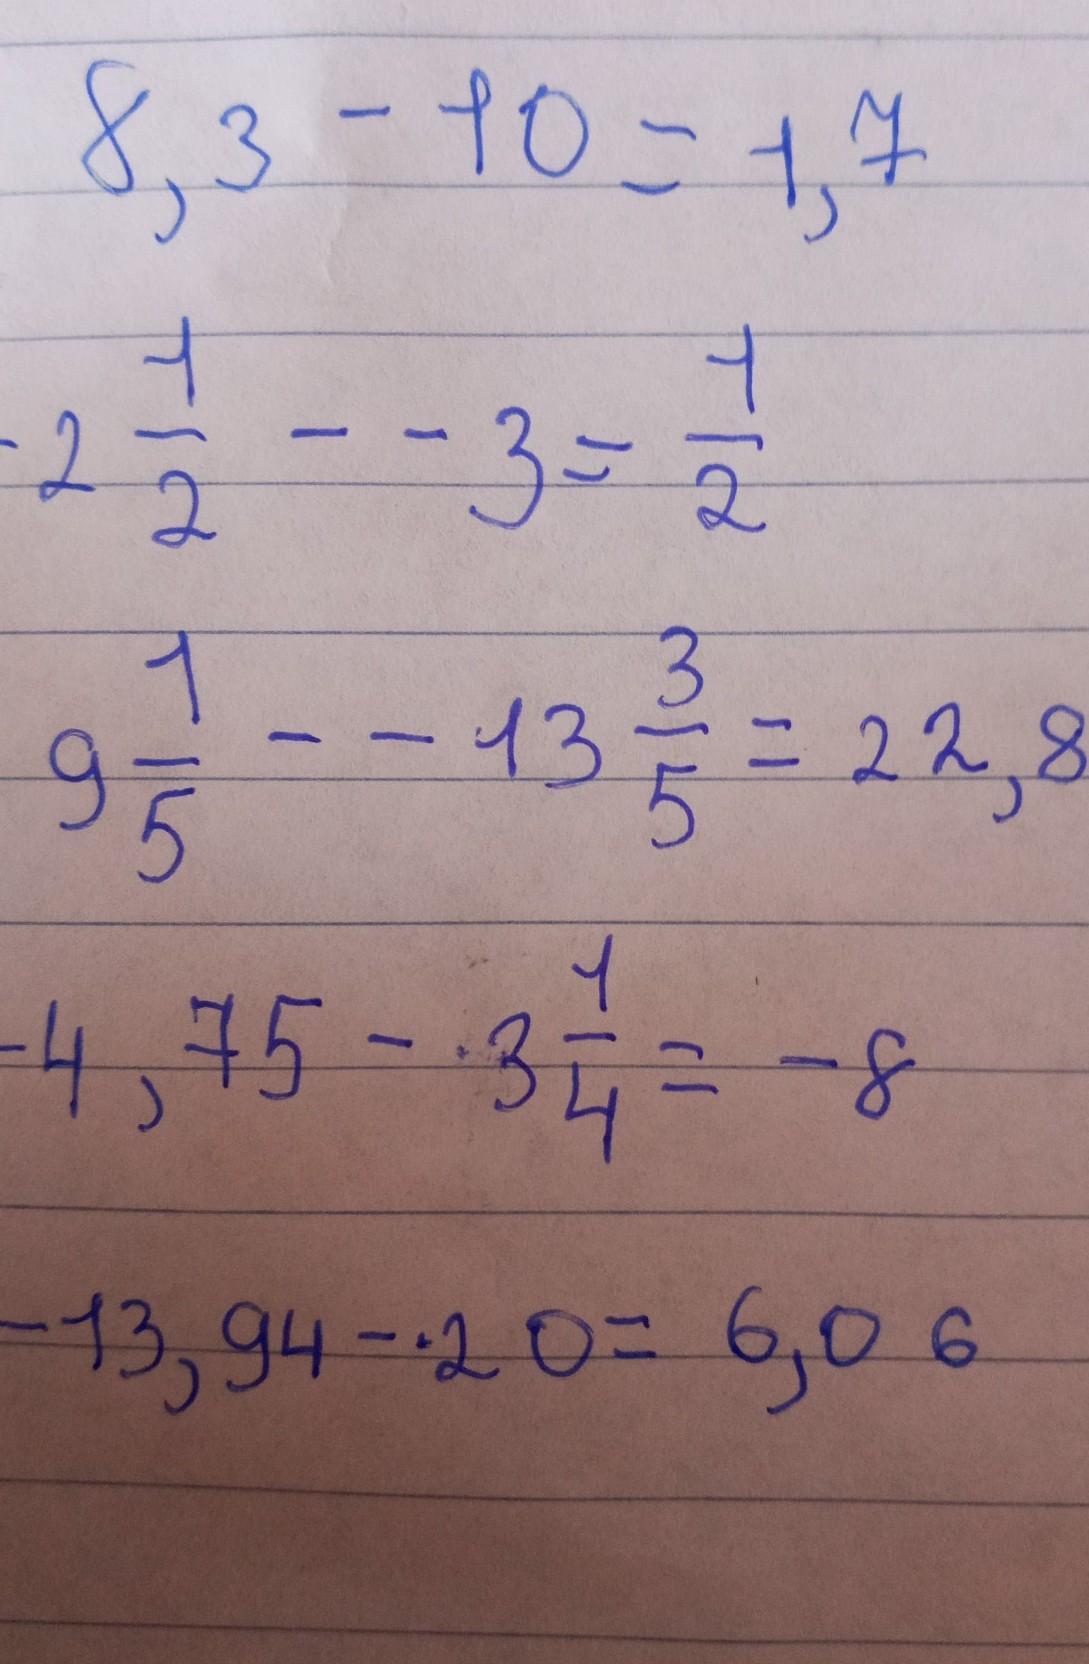 8,3 - 10 = 1,7
-2 1/2 - - 3 = 1/2
9 1/5 - - 13 3/5 = 22,8
-4,75 - 3 1/4 = -8
-13,94 - 20 = 6,06